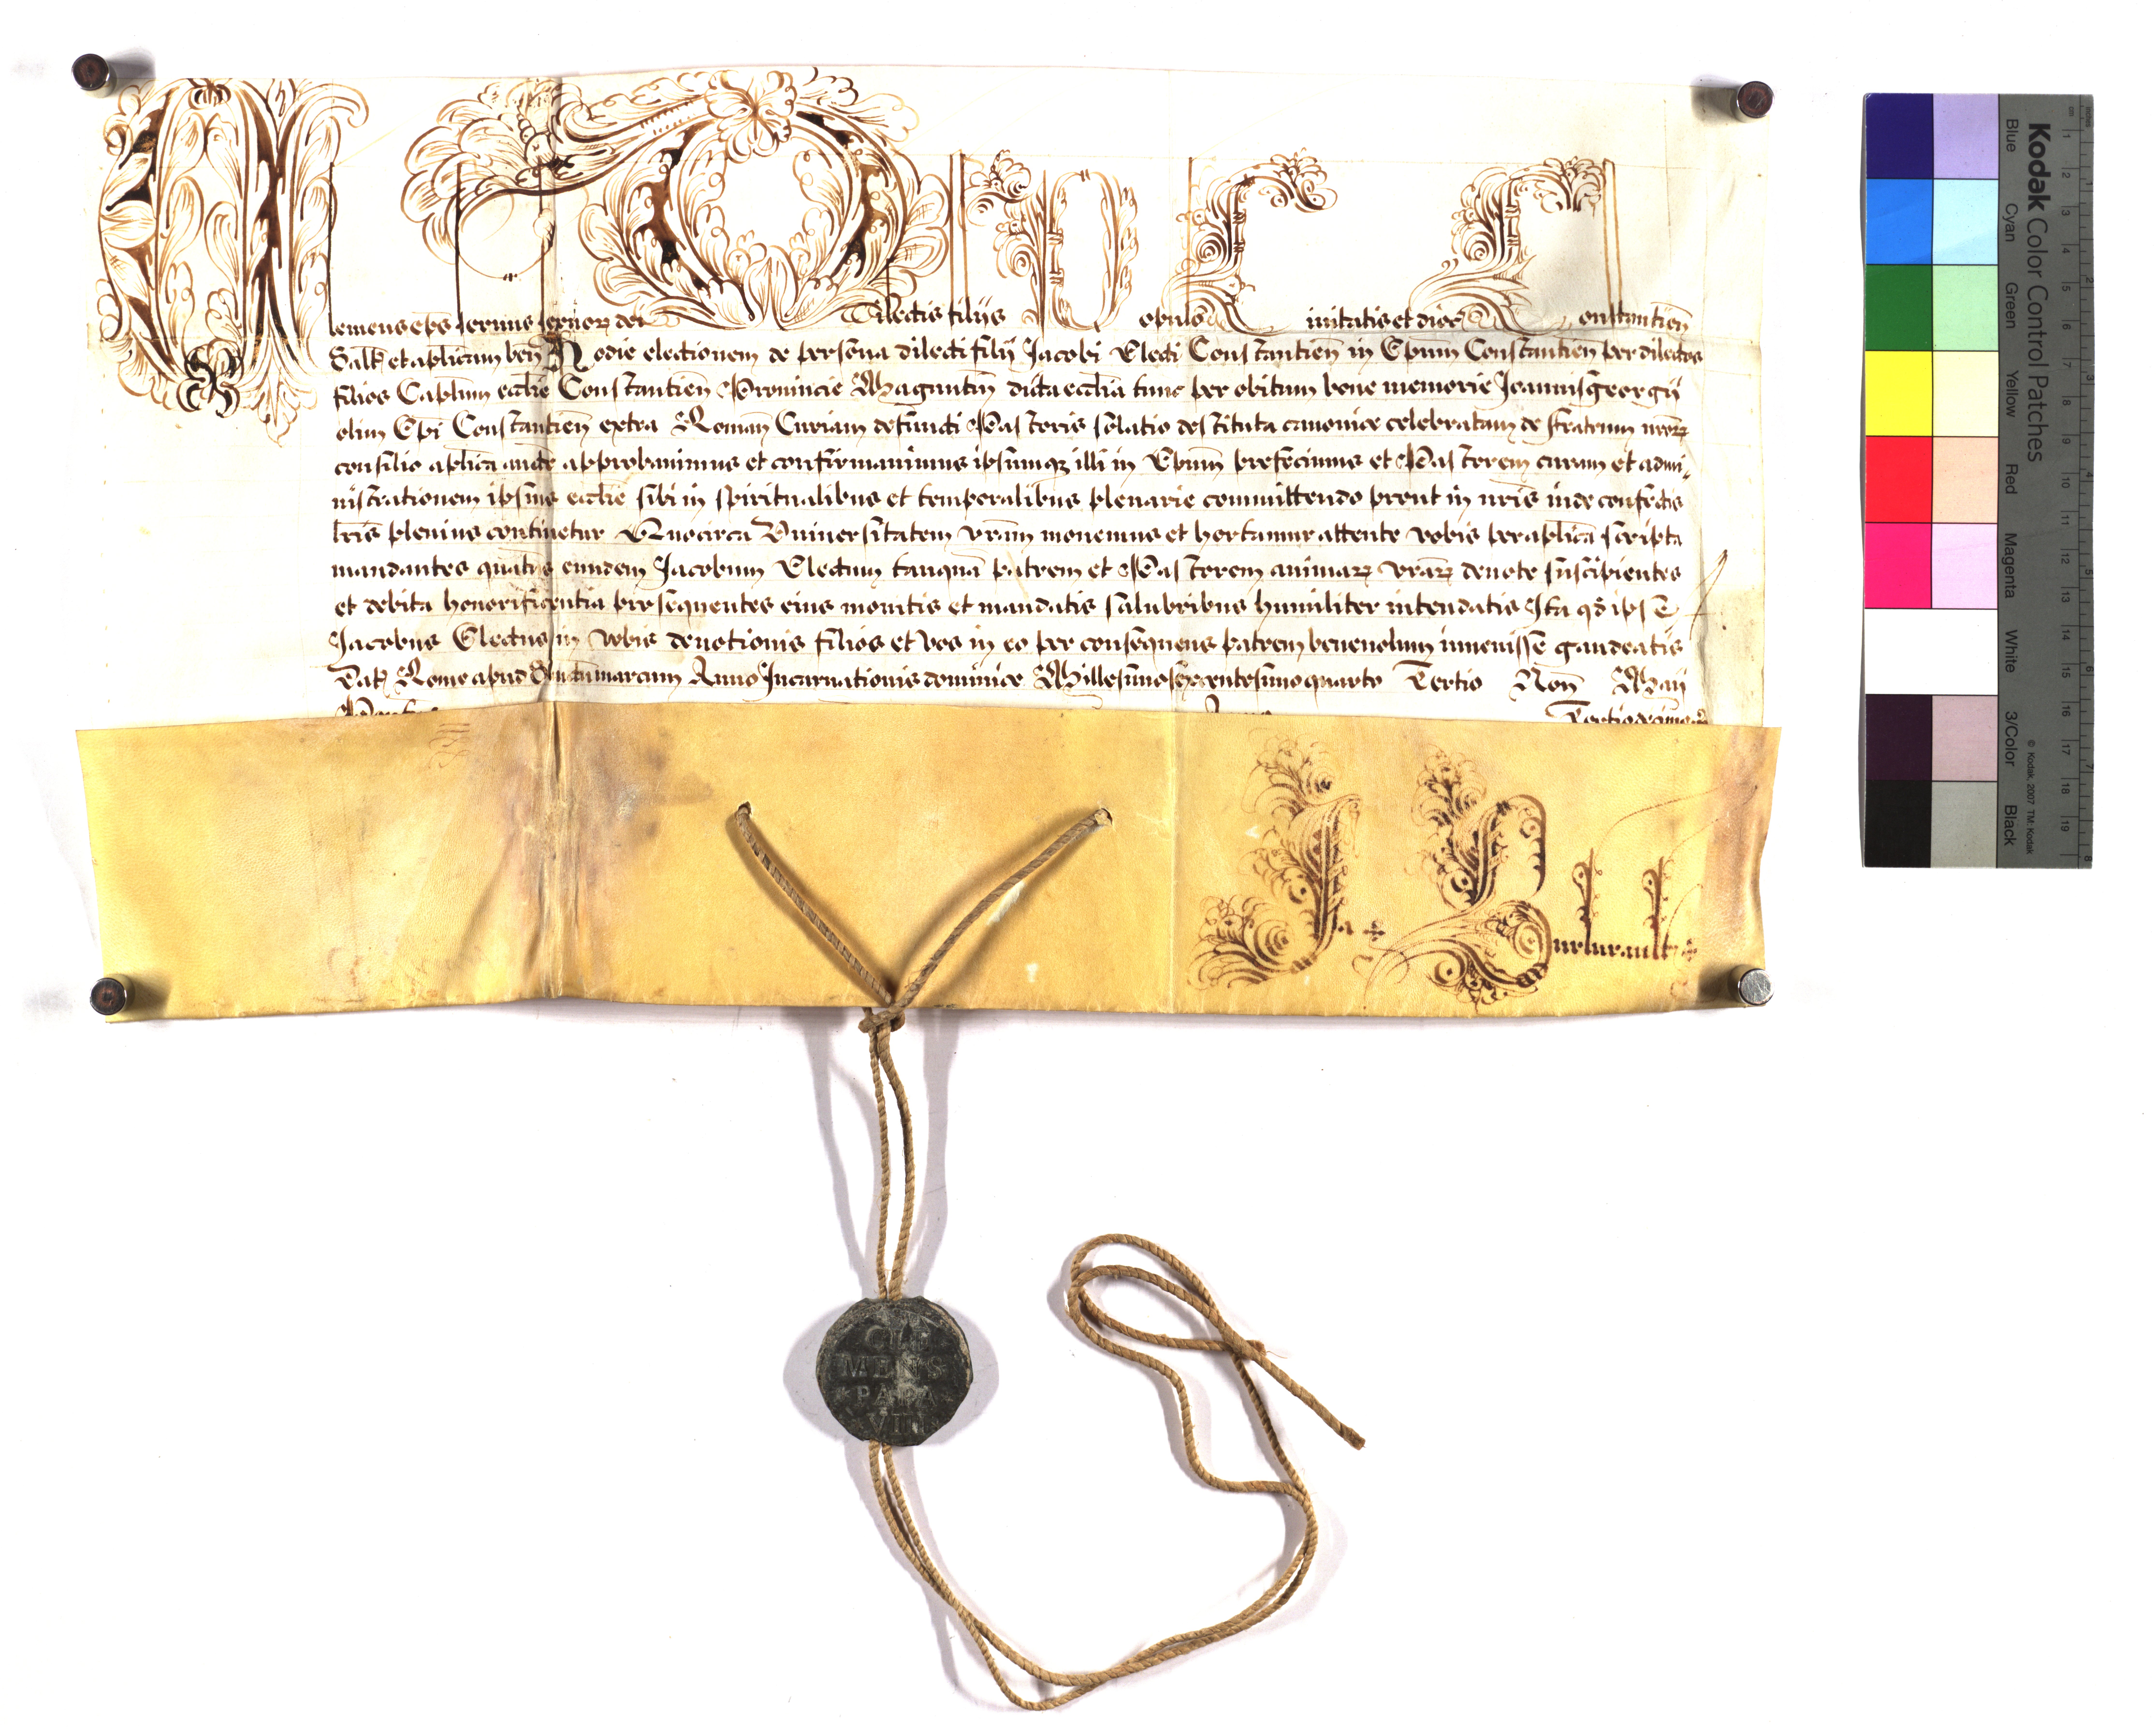 Clemens eps servus servor dei Dilectis filijs Populo Civitatis et dioc Constantien
Salt et aplicam ben Hodie electionem de persona dilecti filij Jacobi Electi Constantien in Epum Constantien per dilectos
filios Caplum ecclie Constantien Provincie Maguntin dicta ecclia tunc per obitum bone memorie Joannisgeorgij
olim Epi Constantien extra Roman Curiam defuncti Pastoris solatio destituta canonice celebratam de fratrum nror
consilio aplica aucte approbavimus et confirmavimus ipsumqz illi in Epum prefecimus et Pastorem curam et admi-
nistrationem ipsius ecclie sibi in spiritualibus et temporalibus plenarie committendo prout in nris inde confectis
lris plenius continetur Quocirca Universitatem vram monemus et hortamur attente vobis per aplica scripta
mandantes quatis eundem Jacobum Electum tanquā patrem et Pastorem animar vrar devote suscipientes
et debita honorificentia prosequentes eius monitis et mandatis salubribus humiliter intendatis Ita qd ipse
Jacobus Electus in vobis devotionis filios et vos in eo per consequens patrem benevolum invenisse gaudeatis
Dat Rome apud Sanctummarcum Anno Incarnationis dominice Millesimosexcentesimoquarto Tertio Non Maij
Anno Tertiodecimo
Ja
CLE
MENS
PAPA
VIII
Kodak Color Control Patches
Blue Cyan Green Yellow Red Magenta White 3/Color Black
© Kodak, 2007 TM: Kodak
cm 1 2 3 4 5 6 7 8 9 10 11 12 13 14 15 16 17 18 19
inches 1 2 3 4 5 6 7 8